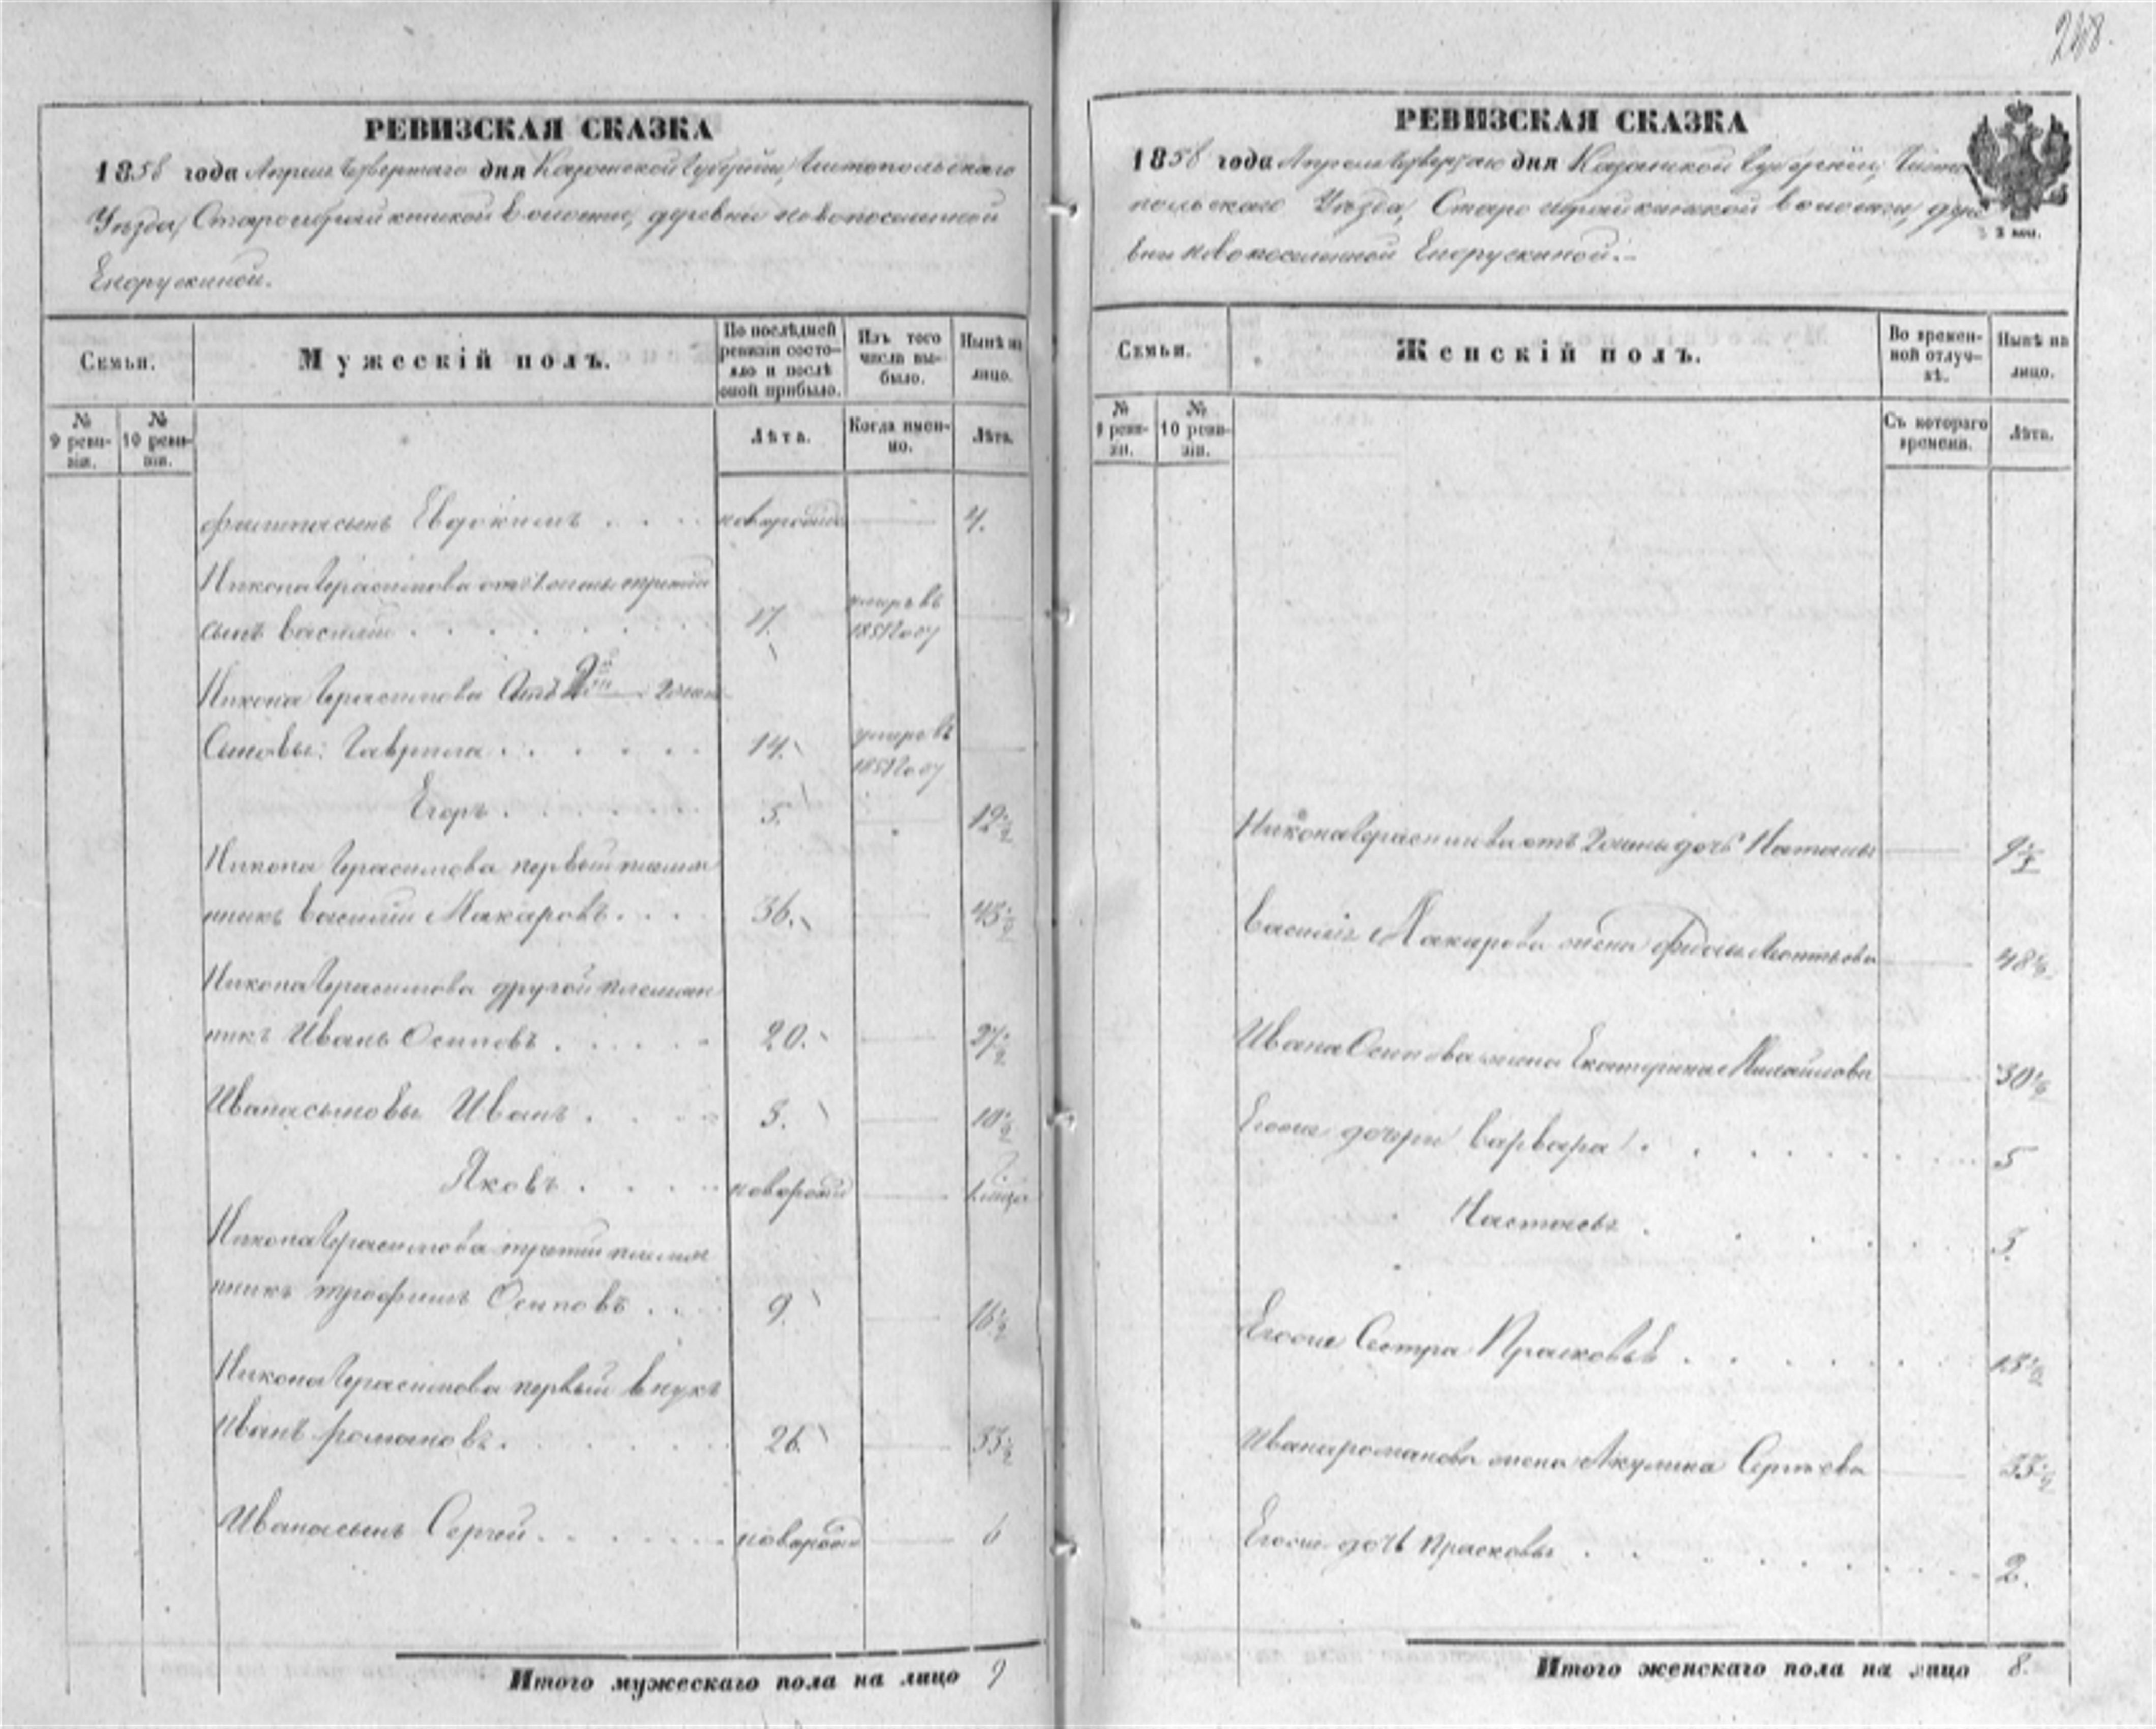 268.
РЕВИЗСКАЯ СКАЗКА
1858 года Апреля Четвертаго дня Казанской Губернии, Чистопольскаго
Уѣзда, Староибрайкинской Волости, деревни новопоселенной
Елорускиной.
Семьи.
Мужескій полъ.
По послѣдней ревизіи состояло и послѣ оной прибыло.
Изъ того числа выбыло.
Нынѣ на лицо.
№ 9 ревизіи.
№ 10 ревизіи.
Лѣта.
Когда именно.
Лѣта.
сынъ Евдокимъ . . . новорожд 4.
Никона Герасимова отъ 1 жены третій
сынъ василий . . . 17. умеръ въ 1851 году
Никона Герасимова Отъ 2й жены
Сыновья: Гаврила . . . 14. умеръ въ 1851 году
Егоръ . . . 5. 12½
Никона Герасимова первый племян
никъ василий Макаровъ . . . 36. 43½
Никона Герасимова другой племян
никъ Иванъ Осиповъ . . . 20. 27½
Ивана сыновья Иванъ . . . 3. 10½
Яковъ . . . новорожд
Никона Герасимова третий племян
никъ трофимъ Осиповъ . . . 9. 16½
Никона Герасимова первый внукъ
Иванъ романовъ . . . 26. 33½
Ивана сынъ Сергей . . . новорожд 6
Итого мужескаго пола на лицо 9
РЕВИЗСКАЯ СКАЗКА
1858 года Апреля Четвертаго дня Казанской Губернии, Чисто
польскаго Уѣзда, Староибрайкинской волости, дере
вни новопоселенной Елорускиной.
3 коп.
Семьи.
Женскій полъ.
Во временной отлучкѣ.
Нынѣ на лицо.
№ 9 ревизіи.
№ 10 ревизіи.
Съ котораго времени.
Лѣта.
Никона Герасимова отъ 2 жены дочь Наталья 9½
Василия Макарова жена Леонтьева 48½
Ивана Осипова жена Екатерина Михайлова 30½
Егоже дочери Варвара . . . 5
Настасья . . . 3.
Егоже Сестра Прасковья . . .
Ивана романова жена Акулина Сергѣева 33½
Егоже дочь прасковья . . . 2.
Итого женскаго пола на лицо 8.